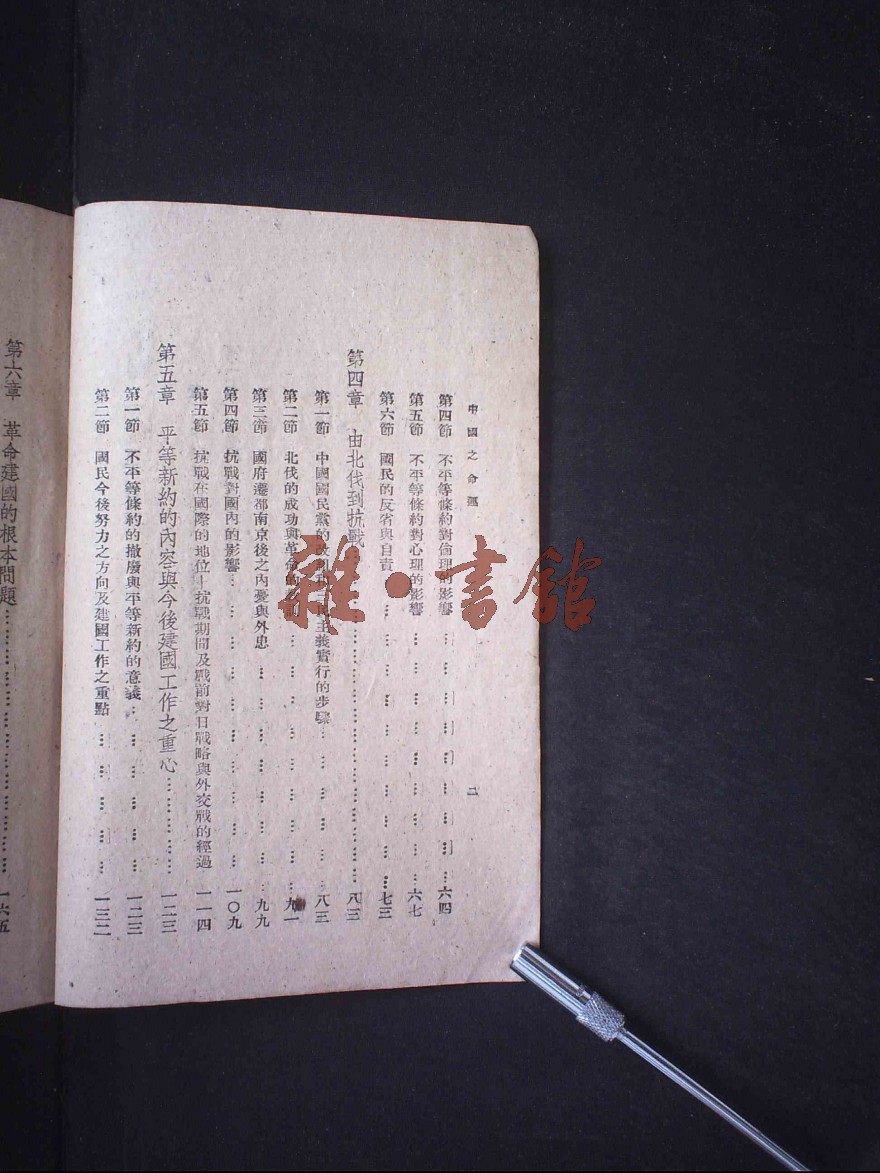 中國之命運
二
第四節 不平等條約對倫理的影響……………………六四
第五節 不平等條約對心理的影響……………………六七
第六節 國民的反省與自責……………………七三
第四章 由北伐到抗戰……………………八三
第一節 中國國民黨的改 主義實行的步驟……………………八三
第二節 北伐的成功與革命的 ……………………九一
第三節 國府遷都南京後之內憂與外患……………………九九
第四節 抗戰對國內的影響……………………一〇九
第五節 抗戰在國際的地位—抗戰期間及戰前對日戰略與外交戰的經過 一一四
第五章 平等新約的內容與今後建國工作之重心…………一二三
第一節 不平等條約的撤廢與平等新約的意義……………………一二三
第二節 國民今後努力之方向及建國工作之重點……………………一三二
第六章 革命建國的根本問題……………………一六五
雜·書館